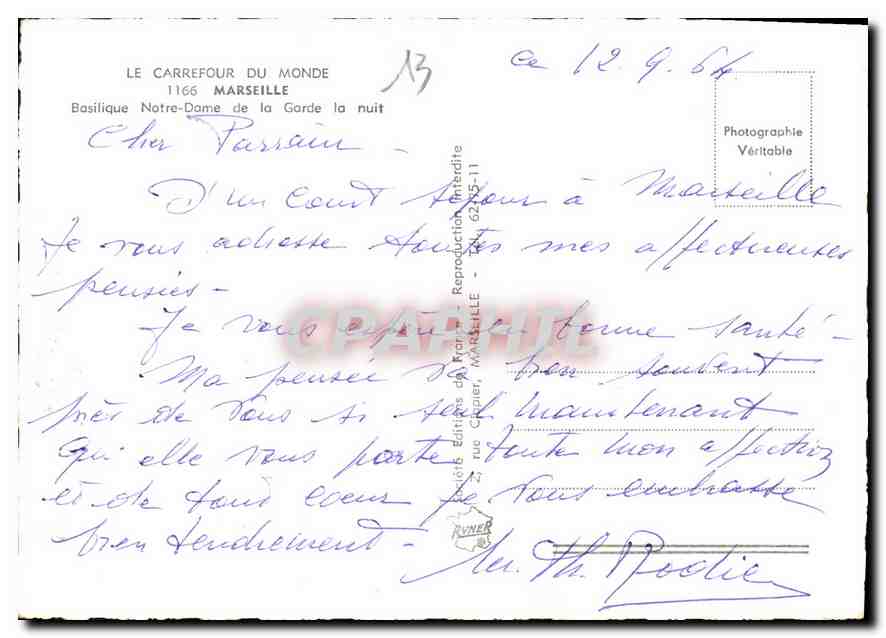 LE CARREFOUR DU MONDE
1166 MARSEILLE
Basilique Notre-Dame de la Garde la nuit
13
ce 12.9.64
Photographie
Véritable
Cher Parrain -
D'un court séjour à Marseille
Je vous adresse toutes mes affectueuses
pensées -
Je vous espère en bonne santé -
Ma pensée va bien souvent
près de vous si seul maintenant
qu'elle vous porte toute mon affection
et de tout coeur je vous embrasse
bien tendrement -
M. Th. Rodie
Société Editions de France - Reproduction interdite
2, rue Cippier, MARSEILLE - Tél. 62-75-11
RYNER
CPARAMA